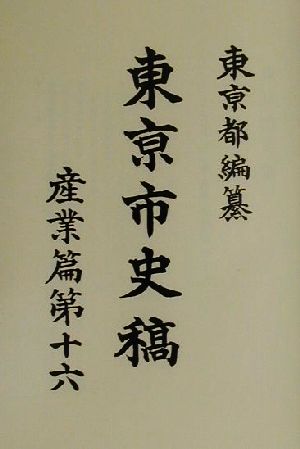 東京都編纂
東京市史稿
産業篇第十六